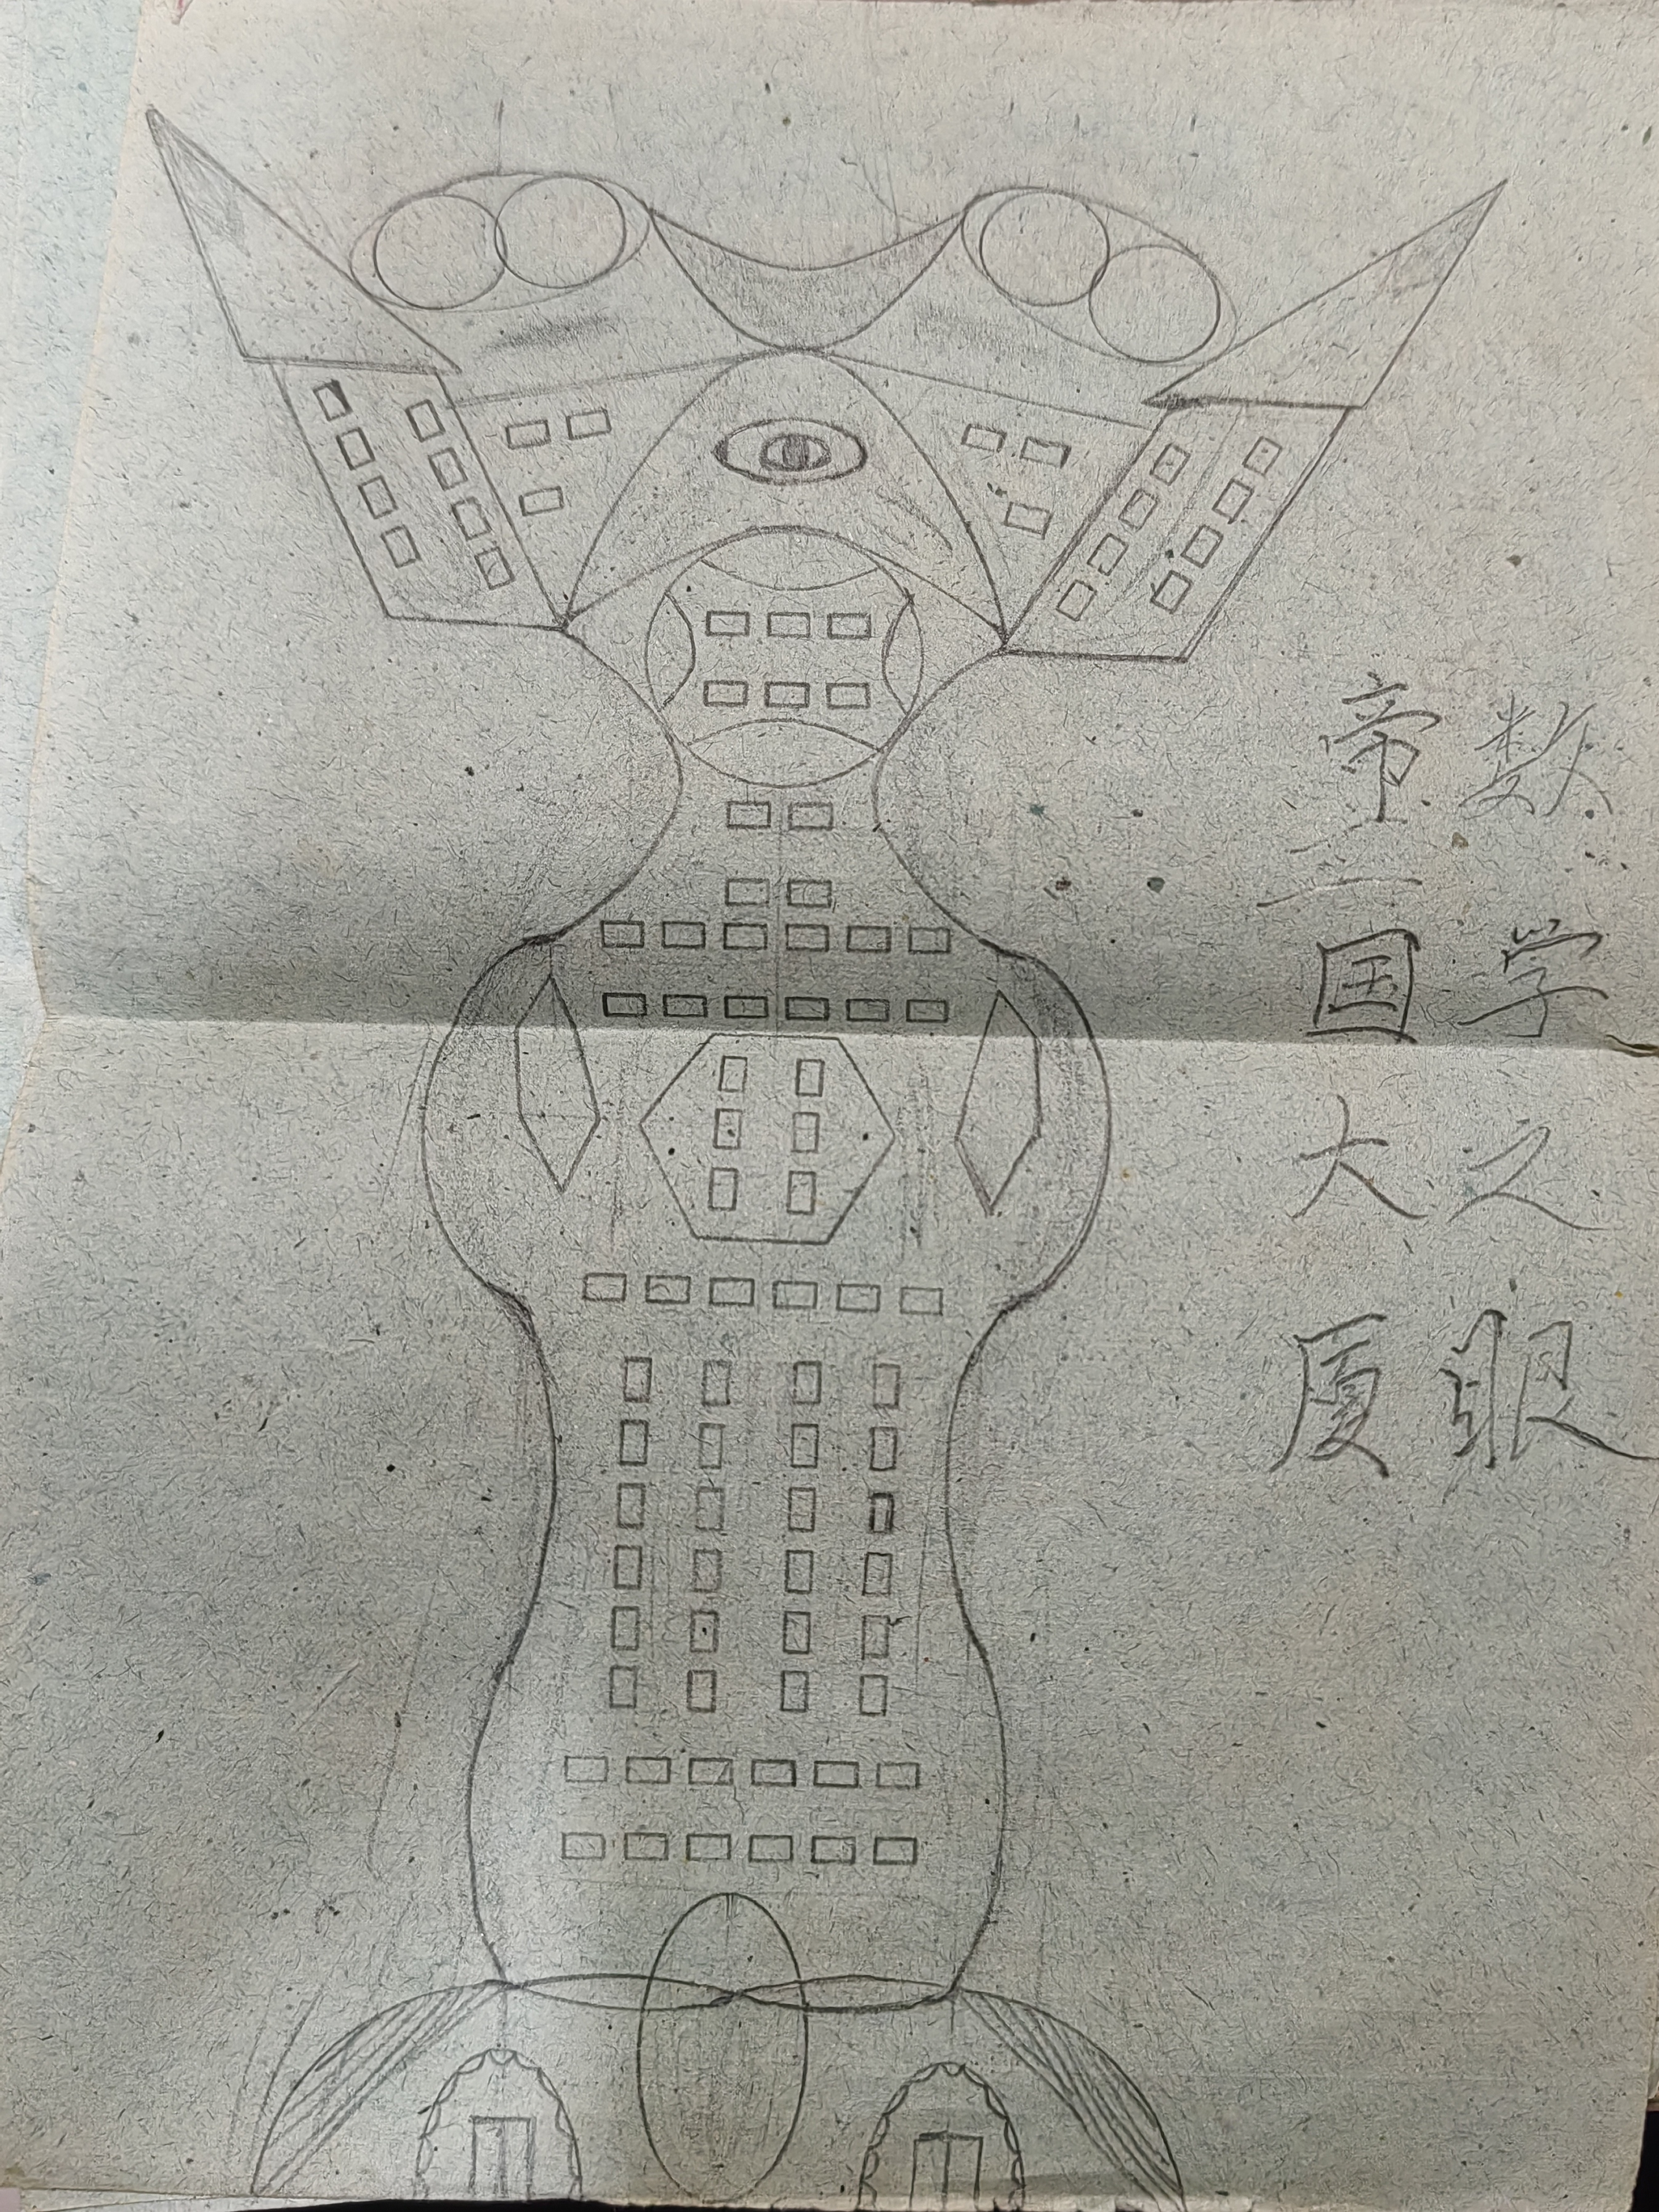 数学之眼
帝国大厦